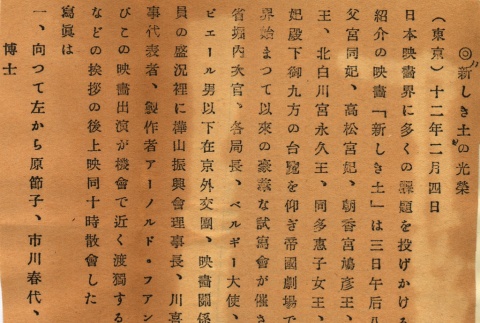 ◎『新しき土』の光榮
（東京）十二年二月四日
日本映畫界に多くの課題を投げかける
紹介の映畫「新しき土」は三日午后八
父宮同妃、高松宮妃、朝香宮鳩彦王、
王、北白川宮永久王、同多惠子女王、
妃殿下御九方の台覽を仰ぎ帝國劇場で
界始まつて以來の豪華な試寫會が催さ
省堀內次官、各局長、ベルギー大使、
ピエール男以下在京外交團、映畫關係
員の盛況裡に樺山振興會理事長、川喜
事代表者、製作者アーノルド・フアン
びこの映畫出演が機會で近く渡獨する
などの挨拶の後上映同十時散會した
寫眞は
一、向つて左から原節子、市川春代、
博士